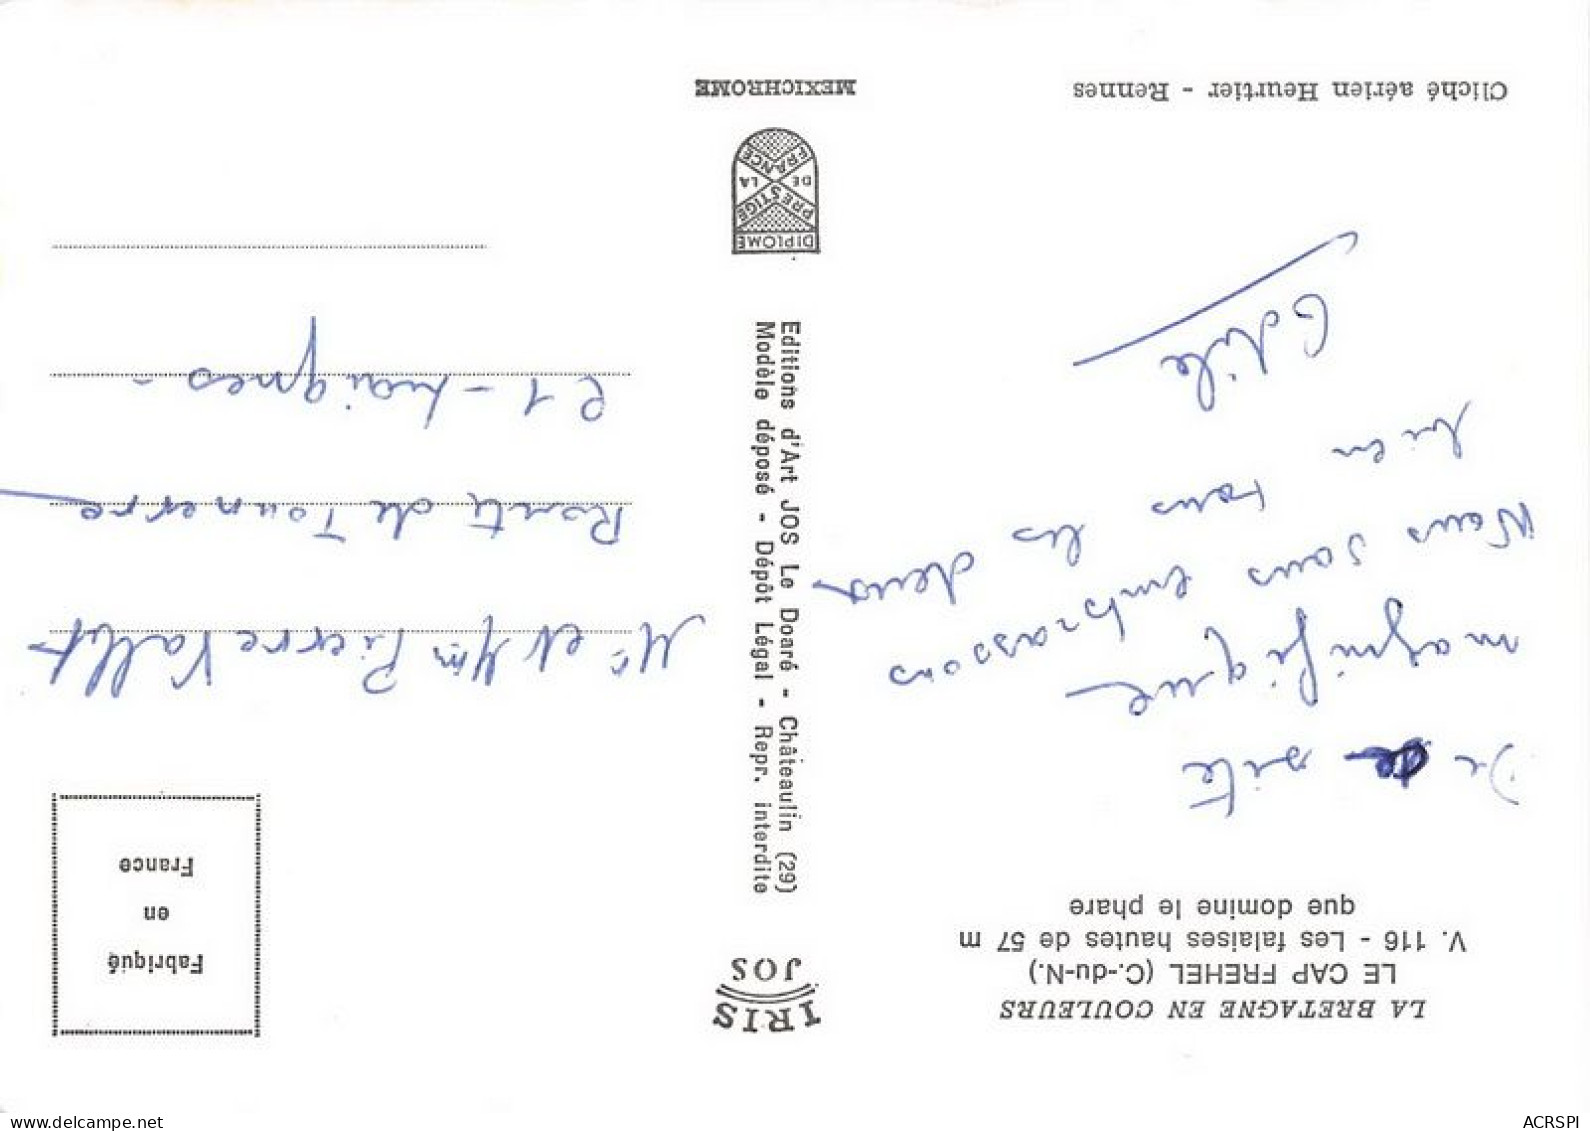 LA BRETAGNE EN COULEURS
LE CAP FREHEL (C.-du-N.)
V. 116 - Les falaises hautes de 57 m
que domine le phare
De ce site
magnifique
Nous vous embrassons
tous les deux
bien
Odile
Cliché aérien Heurtier - Rennes
IRIS
JOS
Editions d'Art JOS Le Doaré - Châteaulin (29)
Modèle déposé - Dépôt Légal - Repr. interdite
DIPLOME
PRESTIGE
DE LA
FRANCE
MEXICHROME
Fabriqué
en
France
Mr et Mm Pierre Vallet
Route de Tounerre
21 - Laignes -
www.delcampe.net
ACRSPI